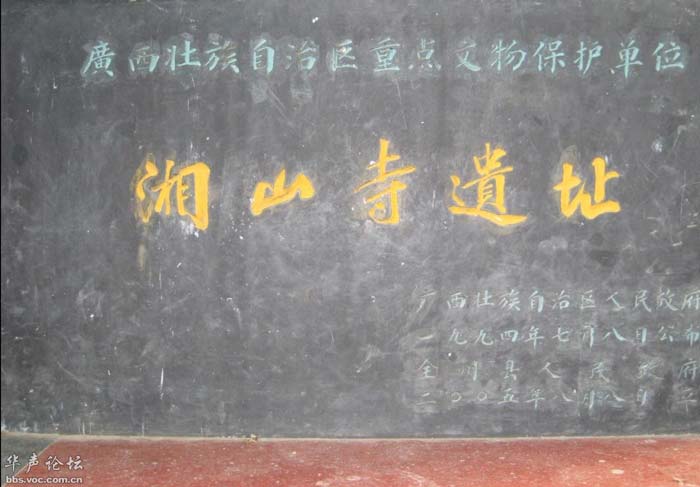 廣西壮族自治区重点文物保护单位
湘山寺遺址
广西壮族自治区人民政府
一九九四年七月八日公布
全州县人民政府
二〇〇五年八月八日立
华声论坛
bbs.voc.com.cn